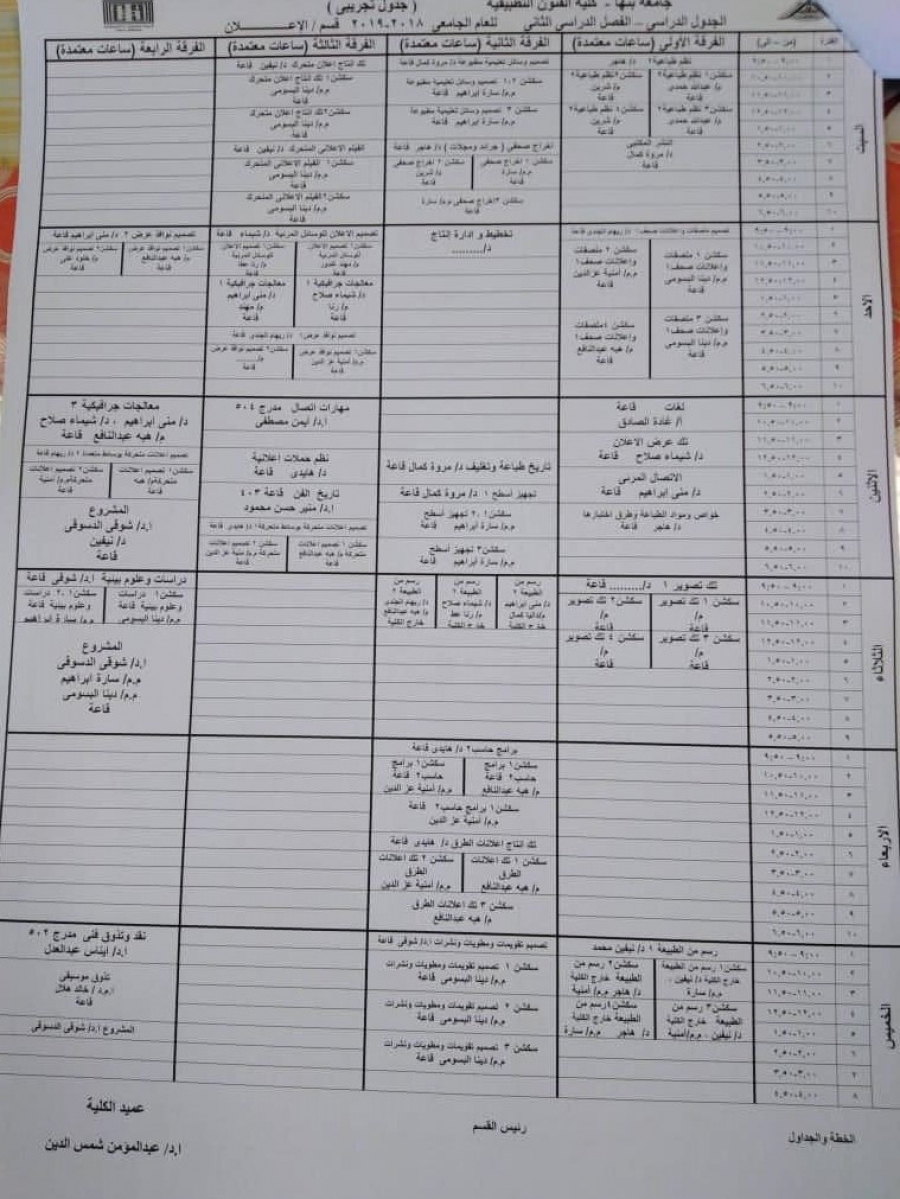 جامعة بنها - كلية الفنون التطبيقية ( جدول تجريبى )
الجدول الدراسى – الفصل الدراسى الثانى للعام الجامعى ٢٠١٨-٢٠١٩ قسم / الإعـــلان
الفترة (من – الى) الفرقة الأولى (ساعات معتمدة) الفرقة الثانية (ساعات معتمدة) الفرقة الثالثة (ساعات معتمدة) الفرقة الرابعة (ساعات معتمدة)
السبت
نظم طباعية٢ د/ هاجر
سكشن١ نظم طباعية٢
م/ عبدالله حمدى
قاعة
سكشن٢نظم طباعية٢
م/ شرين
قاعة
سكشن٣ نظم طباعية٢
م/ عبدالله حمدى
قاعة
سكشن٤ نظم طباعية٢
م/ شرين
قاعة
النشر المكتبى
د/ مروة كمال
قاعة
تصميم وسائل تعليمية مطبوعة د/ مروة كمال قاعة
سكشن ١،٢ تصميم وسائل تعليمية مطبوعة
م.م/ سارة ابراهيم قاعة
سكشن ٣ تصميم وسائل تعليمية مطبوعة
م.م/ سارة ابراهيم قاعة
اخراج صحفى ( جرائد ومجلات ) د/ هاجر قاعة
سكشن ١ إخراج صحفى
م.م/ سارة
قاعة
سكشن ٢ اخراج صحفى
م/ شرين
قاعة
سكشن ٣اخراج صحفى م.م/ سارة
قاعة
تك انتاج اعلان متحرك د/ نيفين قاعة
سكشن١ تك انتاج اعلان متحرك
م.م/ دينا البسومى
قاعة
سكشن٢ تك انتاج اعلان متحرك
م.م/ دينا البسومى
قاعة
الفيلم الاعلانى المتحرك د/ نيفين قاعة
سكشن١ الفيلم الاعلانى المتحرك
م.م/ دينا البسومى
قاعة
سكشن٢الفيلم الاعلانى المتحرك
م.م/ دينا البسومى
قاعة
الاحد
تصميم ملصقات وإعلانات صحف١ د/ ريهام الجندى قاعة
سكشن ١ ملصقات
وإعلانات صحف١
م.م/ دينا البسومى
قاعة
سكشن ٢ ملصقات
وإعلانات صحف١
م.م/ أمنية عزالدين
قاعة
سكشن ٣ ملصقات
وإعلانات صحف١
م.م/ دينا البسومى
قاعة
سكشن ٤ملصقات
وإعلانات صحف١
م/ هبه عبدالنافع
قاعة
تخطيط و ادارة إنتاج
د/..........
تصميم الاعلان للوسائل المرئية د/ شيماء قاعة
سكشن١ تصميم الاعلان
للوسائل المرئية
قاعة
سكشن٢ تصميم الاعلان
للوسائل المرئية
قاعة
معالجات جرافيكية ١
د/ شيماء صلاح
م/ رنا
قاعة
معالجات جرافيكية ١
د/ منى ابراهيم
م/ مهند
قاعة
تصميم نوافذ عرض١ د/ ريهام الجندى قاعة
سكشن١ تصميم نوافذ عرض
م.م/ أمنية عز الدين
قاعة
سكشن٢ تصميم نوافذ عرض
قاعة
تصميم نوافذ عرض ٢ د/ منى ابراهيم قاعة
سكشن١ تصميم نوافذ عرض
م/ هبه عبدالنافع
قاعة
سكشن٢ تصميم نوافذ عرض
م/ خلود على
قاعة
الاثنين
لغات قاعة
أ/ غادة الصادق
تك عرض الاعلان
د/ شيماء صلاح قاعة
الاتصال المرئى
د/ منى ابراهيم قاعة
خواص ومواد الطباعة وطرق اختبارها
د/ هاجر قاعة
تاريخ طباعة وتغليف د/ مروة كمال قاعة
تجهيز أسطح ١ د/ مروة كمال قاعة
سكشن١،٢ تجهيز أسطح
م.م/ سارة ابراهيم قاعة
سكشن٣ تجهيز أسطح
م.م/ سارة ابراهيم قاعة
مهارات اتصال مدرج ٥٠٤
ا.د/ أيمن مصطفى
نظم حملات اعلانية
د/ هايدى قاعة
تاريخ الفن قاعة ٤٠٣
ا.د/ منير حسن محمود
تصميم اعلانات متحركة بوسائط متحركة١ د/ هايدى قاعة
سكشن ١ تصميم اعلانات
متحركة م/ هبه عبدالنافع
قاعة
سكشن ٢ تصميم اعلانات
متحركة م.م/ منية عز الدين
قاعة
معالجات جرافيكية ٣
د/ منى ابراهيم ، د/ شيماء صلاح
م/ هبه عبدالنافع قاعة
تصميم اعلانات متحركة بوسائط متعددة ٢ د/ ريهام قاعة
سكشن١ تصميم اعلانات
متحركةم/ هبه
قاعة
سكشن٢ تصميم اعلانات
متحركةم.م/ امنية
قاعة
المشروع
ا.د/ شوقى الدسوقى
د/ نيفين
قاعة
الثلاثاء
تك تصوير ١ د/.......... قاعة
سكشن ١ تك تصوير
م/
قاعة
سكشن٢ تك تصوير
م/
قاعة
سكشن ٣ تك تصوير
م/
قاعة
سكشن ٤ تك تصوير
م/
قاعة
رسم من
الطبيعة ٢
د/ منى ابراهيم
م/داليا كمال
خارج الكلية
رسم من
الطبيعة ٢
د/ شيماء صلاح
م/ رنا عطا
خارج الكلية
رسم من
الطبيعة ٢
د/ ريهام الجندى
م/ هبه عبدالنافع
خارج الكلية
دراسات وعلوم بينية ا.د/ شوقى قاعة
سكشن١ دراسات
وعلوم بينية قاعة
م.م/ دينا البسومى
سكشن١،٢ دراسات
وعلوم بينية قاعة
م.م/ سارة ابراهيم
المشروع
ا.د/ شوقى الدسوقى
م.م/ سارة ابراهيم
م.م/ دينا البسومى
قاعة
الاربعاء
برامج حاسب٢ د/ هايدى قاعة
سكشن١ برامج
حاسب٢ قاعة
م/ هبه عبدالنافع
سكشن١ برامج
حاسب٢ قاعة
م.م/ أمنية عز الدين
سكشن١ برامج حاسب٢ قاعة
م.م/ أمنية عز الدين
تك انتاج اعلانات الطرق د/ هايدى قاعة
سكشن ١ تك اعلانات
الطرق
م/ هبه عبدالنافع
سكشن ٢ تك اعلانات
الطرق
م.م/ امنية عز الدين
سكشن ٣ تك اعلانات الطرق
م/ هبه عبدالنافع
الخميس
رسم من الطبيعة ١ د/ نيفين محمد
سكشن١ رسم من الطبيعة
خارج الكلية د/ نيفين ،
م.م/ سارة
سكشن٢ رسم من
الطبيعة خارج الكلية
د/ هاجر م.م/ أمنية
سكشن٣ رسم من
الطبيعة خارج الكلية
د/ نيفين ، م.م/أمنية
سكشن٤رسم من
الطبيعة خارج الكلية
د/ هاجر م.م/ سارة
تصميم تقويمات ومطويات ونشرات ا.د/ شوقى قاعة
سكشن ١ تصميم تقويمات ومطويات ونشرات
م.م/ دينا البسومى قاعة
سكشن ٢ تصميم تقويمات ومطويات ونشرات
م.م/ دينا البسومى قاعة
سكشن ٣ تصميم تقويمات ومطويات ونشرات
م.م/ دينا البسومى قاعة
نقد وتذوق فنى مدرج ٥٠٢
ا.د/ ايناس عبدالعدل
تذوق موسيقى
ا.م.د / خالد هلال
قاعة
المشروع ا.د/ شوقى الدسوقى
الخطة والجداول
رئيس القسم
عميد الكلية
ا.د/ عبدالمؤمن شمس الدين